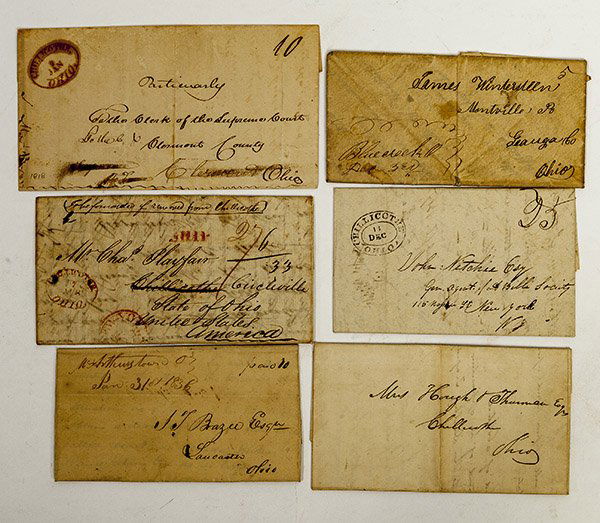 CHILLICOTHE
8
JAN
OHIO
10
Particularly
To the Clerk of the Supreme Court
Clermont County
Ohio
1818
James Wintersteen
5
Montville
Geauga Co
Ohio
To be forwarded if removed from Chillicothe
SHIP
Mr Chas. Playfair
33
Chillicothe Circleville
State of Ohio
United States
America
OHIO
CHILLICOTHE
11
DEC
OHIO
25
John Nitchie Esq
Gen. Agent Bible Society
New York
N Y
paid 10
Jan 31st 1836
S. T. Bazee Esqr
Lancaster
Ohio
Mrs Hough & Thurman Esqr
Chillicothe
Ohio